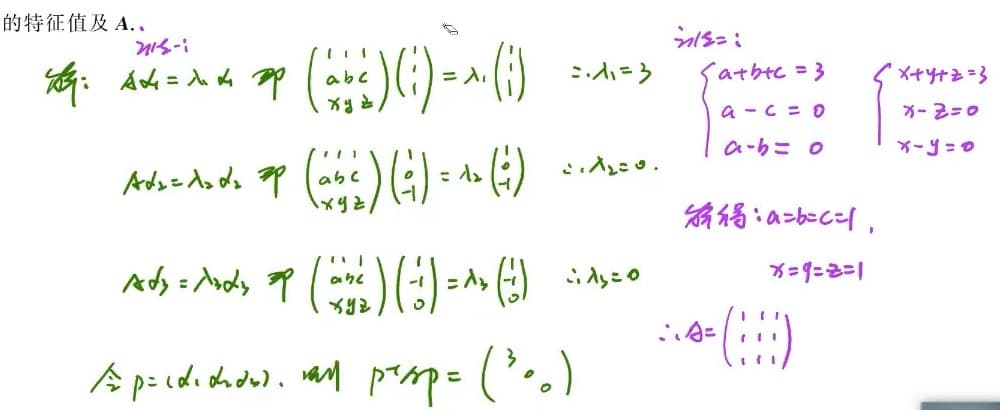 的特征值及 A.
法一:
解: Aα₁ = λ₁α₁ 即 (1 1 1 / a b c / x y z)(1 / 1 / 1) = λ₁(1 / 1 / 1) ∴λ₁=3
Aα₂=λ₂α₂ 即 (1 1 1 / a b c / x y z)(1 / 0 / -1) = λ₂(1 / 0 / -1) ∴λ₂=0.
Aα₃=λ₃α₃ 即 (1 1 1 / a b c / x y z)(1 / -1 / 0) = λ₃(1 / -1 / 0) ∴λ₃=0
令 P=(α₁ α₂ α₃). 则 P⁻¹AP = (3 0 0)
法二:
{a+b+c=3
a-c=0
a-b=0
{x+y+z=3
x-z=0
x-y=0
解得:a=b=c=1,
x=y=z=1
∴A=(1 1 1 / 1 1 1 / 1 1 1)